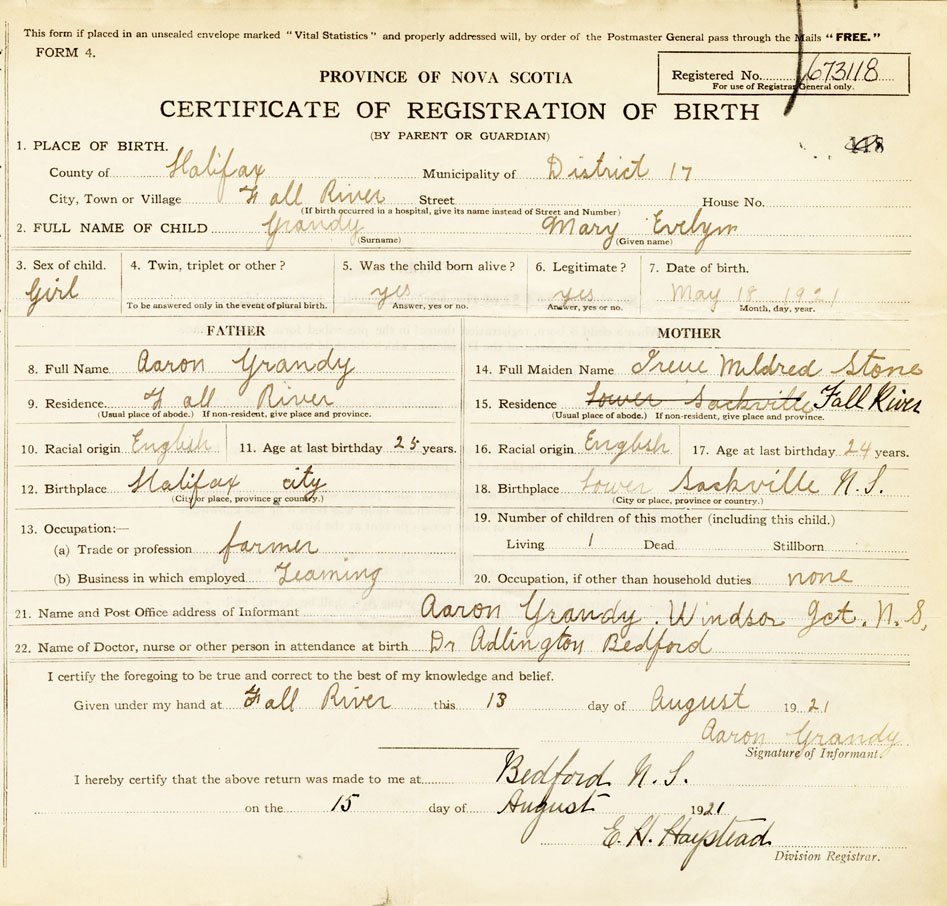 This form if placed in an unsealed envelope marked "Vital Statistics" and properly addressed will, by order of the Postmaster General pass through the Mails "FREE."
FORM 4.
Registered No. 673118
For use of Registrar General only.
PROVINCE OF NOVA SCOTIA
CERTIFICATE OF REGISTRATION OF BIRTH
(BY PARENT OR GUARDIAN)
118
1. PLACE OF BIRTH.
County of Halifax Municipality of District 17
City, Town or Village Fall River Street House No.
(If birth occurred in a hospital, give its name instead of Street and Number)
2. FULL NAME OF CHILD Grandy Mary Evelyn
(Surname) (Given name)
3. Sex of child. 4. Twin, triplet or other? 5. Was the child born alive? 6. Legitimate? 7. Date of birth.
Girl yes yes May 18 1921
To be answered only in the event of plural birth. Answer, yes or no. Answer, yes or no. Month, day, year.
FATHER
8. Full Name Aaron Grandy
9. Residence Fall River
(Usual place of abode.) If non-resident, give place and province.
10. Racial origin English 11. Age at last birthday 25 years.
12. Birthplace Halifax city
(City or place, province or country.)
13. Occupation:—
(a) Trade or profession farmer
(b) Business in which employed Teaming
MOTHER
14. Full Maiden Name Irene Mildred Stone
15. Residence Lower Sackville Fall River
(Usual place of abode.) If non-resident, give place and province.
16. Racial origin English 17. Age at last birthday 24 years.
18. Birthplace Lower Sackville N.S.
(City or place, province or country.)
19. Number of children of this mother (including this child.)
Living 1 Dead Stillborn
20. Occupation, if other than household duties none
21. Name and Post Office address of Informant Aaron Grandy. Windsor Jct. N.S,
22. Name of Doctor, nurse or other person in attendance at birth Dr Adlington Bedford
I certify the foregoing to be true and correct to the best of my knowledge and belief.
Given under my hand at Fall River this 13 day of August 1921
Aaron Grandy
Signature of Informant.
I hereby certify that the above return was made to me at Bedford N.S.
on the 15 day of August 1921
E. H. Haystead
Division Registrar.